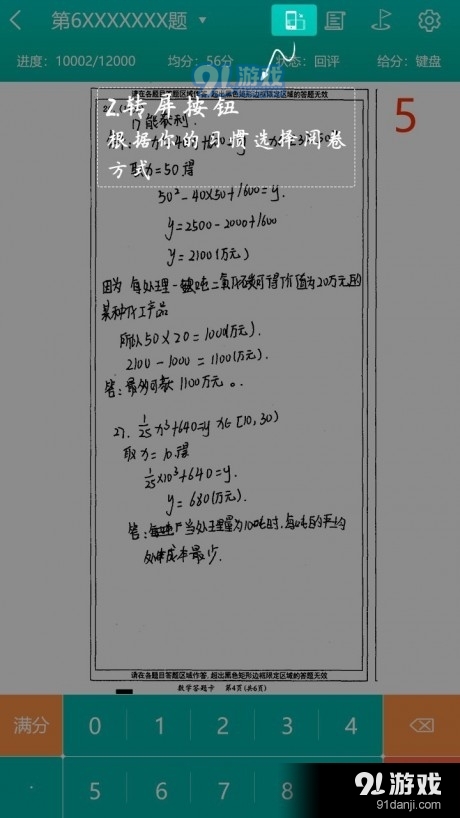 第6XXXXXXX题
进度：10002/12000 均分：56分 状态：回评 给分：键盘
91游戏
请在各题目答题区域作答，超出黑色矩形边框限定区域的答题无效
2.转屏按钮
根据你的习惯选择阅卷
方式
5
1) 能获利.
取x=50得
50²-40×50+1600=y.
y=2500-2000+1600
y=2100(万元)
因为 每处理一吨二氧化碳可得价值为20万元的
某种化工产品
所以50×20=1000(万元).
2100-1000=1100(万元).
答:最多可获1100万元。.
2). 1/25 x³+640=y x∈[10,30)
取x=10.得
1/25×10³+640=y.
y=680(万元).
答: 当处理量为10吨时,每吨的平均
处理成本最少.
请在各题目答题区域作答，超出黑色矩形边框限定区域的答题无效
数学答题卡 第4页(共6页)
满分 0 1 2 3 4
. 5 6 7 8
91游戏
91danji.com